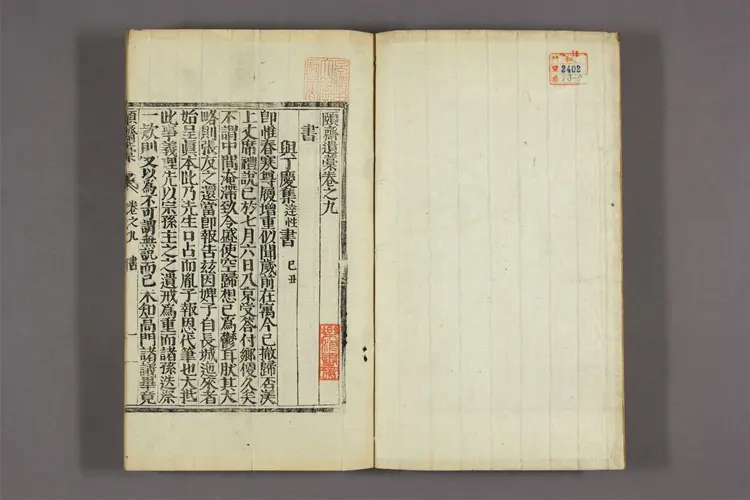 頤齋遺藁卷之九
書
與丁慶集達性書 己丑
卽惟春寒尊履增重仍聞歲前在寓今已撤歸否湙
上丈席禮說已於七月六日入京受答付鄕便久矣
不謂中間淹滯致今盛使空歸想已爲鬱耳肰其大
略則張友之還當卽報吿玆因婢子自長城迤來者
始呈眞本此乃先生口占而胤子報恩代筆也大抵
此事義理先以宗孫主之之遺戒爲重而諸孫迭祭
一款則又以爲不可謂無說而已未知高門諸議畢竟
頤齋藁 卷之九 書 一
2402